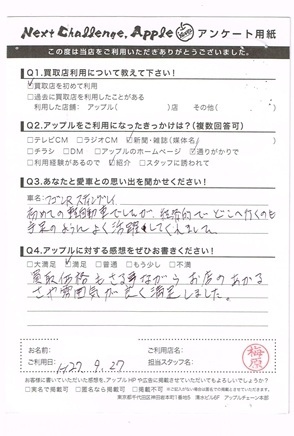 Next Challenge. Apple アンケート用紙
この度は当店をご利用いただきありがとうございました。
Q1.買取店利用について教えて下さい!
□買取店を初めて利用
□過去に買取店を利用したことがある
利用した店舗: アップル( )店 その他( )
Q2.アップルをご利用になったきっかけは?(複数回答可)
□テレビCM □ラジオCM □新聞・雑誌(媒体名 )
□チラシ □DM □アップルのホームページ □通りがかりで
□利用経験があるので □紹介 □スタッフに誘われて
Q3.あなたと愛車との思い出を聞かせください!
車名:ワゴンRスティングレイ
初めての軽自動車でしたが、経済的でどこへ行くのも
手足のようによく活躍してくれました。
Q4.アップルに対する感想をぜひお書きください!
□大満足 □満足 □普通 □もう少し □不満
買取価格もさる事ながらお店のあかる
さや雰囲気が良く満足しました。
お名前: ご利用店名:
ご利用日: H27. 9. 27 担当スタッフ名: 梅原
お客様に書いていただいた感想を、アップルHPや広告に掲載させていただいてもよろしいでしょうか?
□実名で掲載可 □匿名なら掲載可 □掲載不可
東京都千代田区神田岩本町1番地5 清水ビル6F アップルチェーン本部